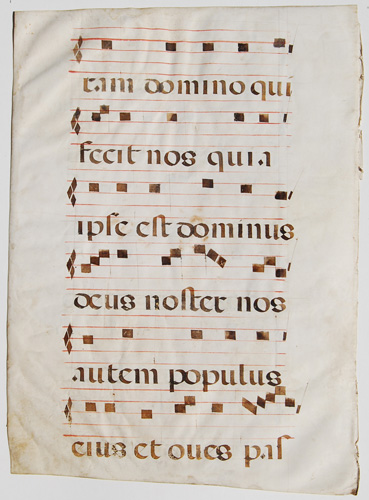 ram domino qui
fecit nos quia
ipse est dominus
deus noster nos
autem populus
eius et oues pas